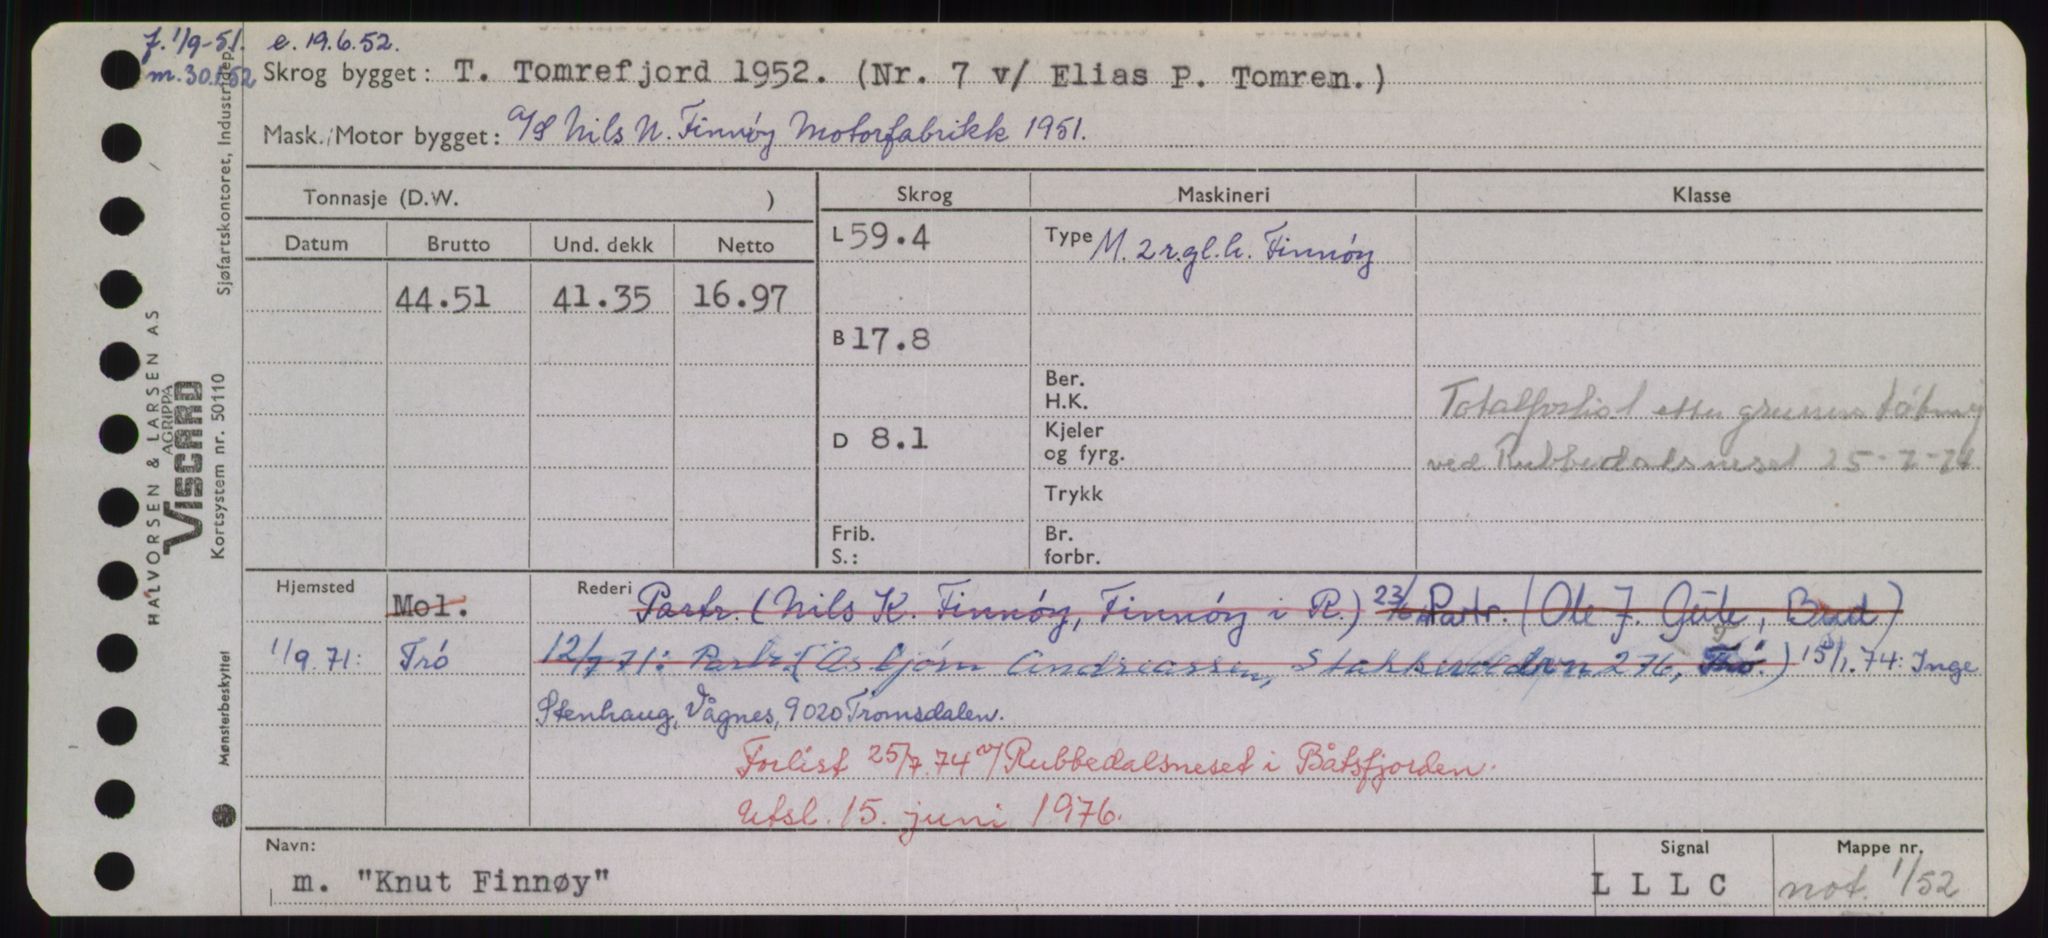 f. 1/9-51. e. 19.6.52.
m. 30.1.52
Skrog bygget: T. Tomrefjord 1952. (Nr. 7 v/ Elias P. Tomren.)
Mask./Motor bygget: A/S Nils N. Finnøy Motorfabrikk 1951.
Tonnasje (D.W. ) Skrog Maskineri Klasse
Datum Brutto Und. dekk Netto
L 59.4 Type M. 2 r.gl.h. Finnøy
44.51 41.35 16.97
B 17.8
Ber.
H.K.
Totalforlist etter grunnstøtning
D 8.1 Kjeler
og fyrg.
ved Rubbedalsneset 25-7-74
Trykk
Frib. Br.
S.: forbr.
Hjemsted Mol. Rederi Partr. (Nils K. Finnøy, Finnøy i R.) Partr. (Ole J. Bud)
1/9.71: Trö 12/7 71: Partr. (Asbjørn Andreassen, Stakkevollvn 276, Trö.) 15/1.74: Inge
Stenhaug, Vågnes, 9020 Tromsdalen.
Forlist 25/7.74 v/ Rubbedalsneset i Båtsfjorden.
Utsl. 15. juni 1976.
Navn: Signal Mappe nr.
m. "Knut Finnøy" L L L C not. 1/52
HALVORSEN & LARSEN AS
AGRIPPA
VISCARD
Kortsystem nr. 50110
Sjøfartskontoret, Industridep.
Mønsterbeskyttet